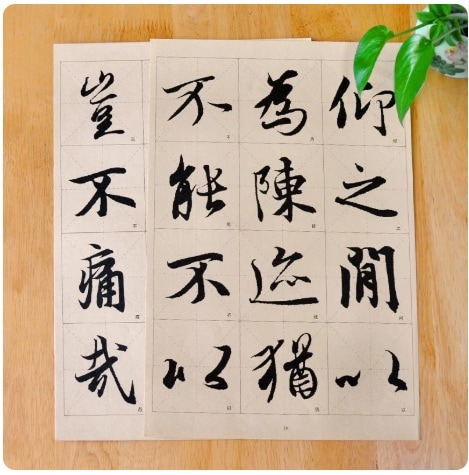 仰之閒以
為陳迹猶
不能不以
豈不痛哉